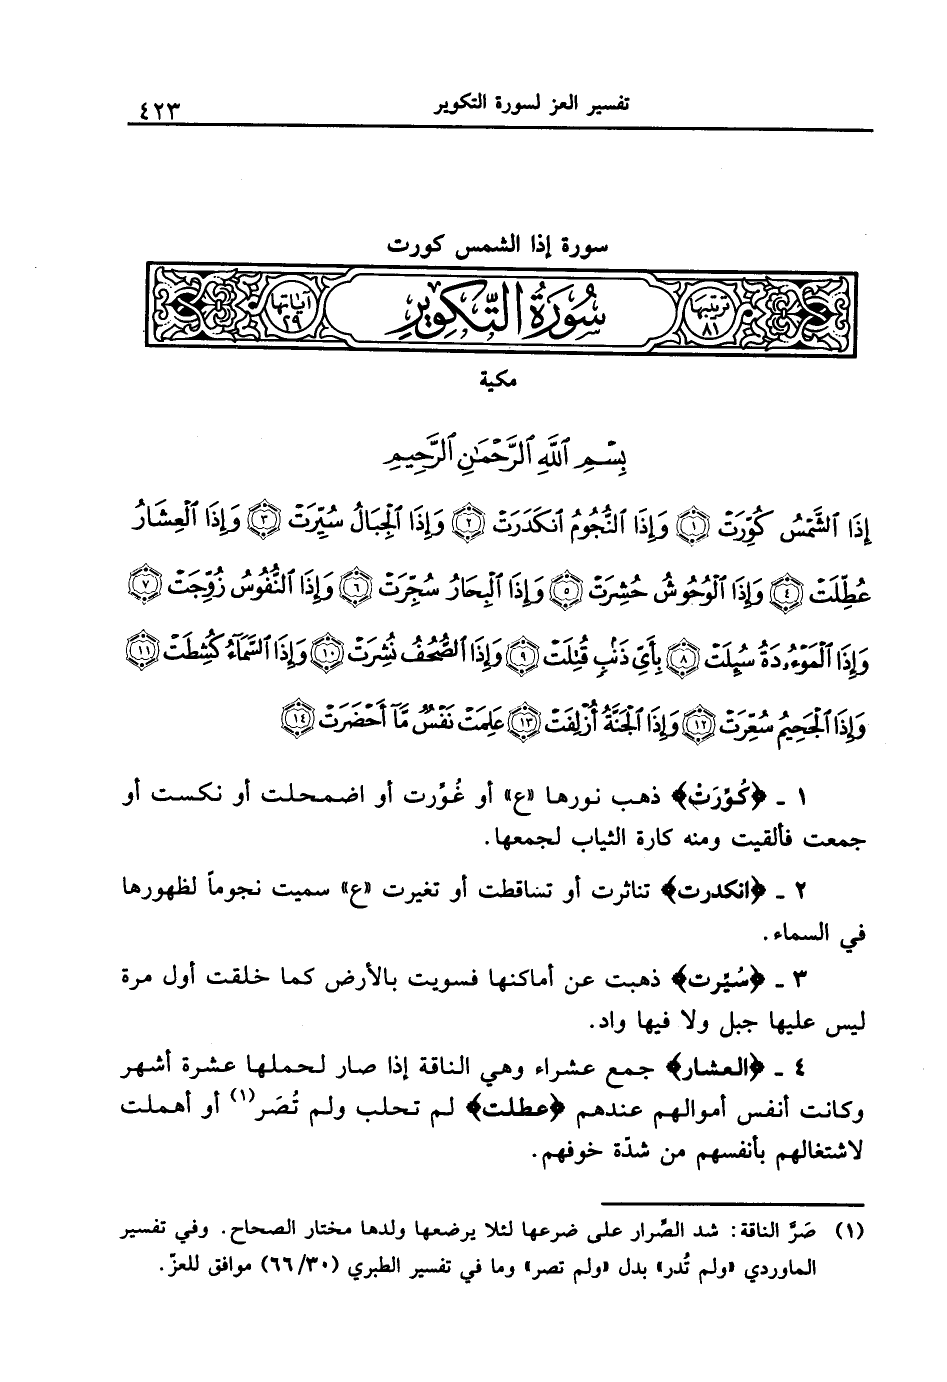 تفسير العز لسورة التكوير ٤٢٣
سورة إذا الشمس كورت
ترتيبها ٨١ سُورَةُ التَّكْوِيرِ آياتها ٢٩
مكية
بِسْمِ ٱللَّهِ ٱلرَّحْمَٰنِ ٱلرَّحِيمِ
إِذَا ٱلشَّمْسُ كُوِّرَتْ ١ وَإِذَا ٱلنُّجُومُ ٱنكَدَرَتْ ٢ وَإِذَا ٱلْجِبَالُ سُيِّرَتْ ٣ وَإِذَا ٱلْعِشَارُ
عُطِّلَتْ ٤ وَإِذَا ٱلْوُحُوشُ حُشِرَتْ ٥ وَإِذَا ٱلْبِحَارُ سُجِّرَتْ ٦ وَإِذَا ٱلنُّفُوسُ زُوِّجَتْ ٧
وَإِذَا ٱلْمَوْءُۥدَةُ سُئِلَتْ ٨ بِأَىِّ ذَنۢبٍ قُتِلَتْ ٩ وَإِذَا ٱلصُّحُفُ نُشِرَتْ ١٠ وَإِذَا ٱلسَّمَآءُ كُشِطَتْ ١١
وَإِذَا ٱلْجَحِيمُ سُعِّرَتْ ١٢ وَإِذَا ٱلْجَنَّةُ أُزْلِفَتْ ١٣ عَلِمَتْ نَفْسٌ مَّآ أَحْضَرَتْ ١٤
١ ـ ﴿كُوِّرَتْ﴾ ذهب نورها «ع» أو غُوِّرت أو اضمحلت أو نكست أو
جمعت فألقيت ومنه كارة الثياب لجمعها.
٢ ـ ﴿انكدرت﴾ تناثرت أو تساقطت أو تغيرت «ع» سميت نجوماً لظهورها
في السماء.
٣ ـ ﴿سُيِّرت﴾ ذهبت عن أماكنها فسويت بالأرض كما خلقت أول مرة
ليس عليها جبل ولا فيها واد.
٤ ـ ﴿العشار﴾ جمع عشراء وهي الناقة إذا صار لحملها عشرة أشهر
وكانت أنفس أموالهم عندهم ﴿عطلت﴾ لم تحلب ولم تُصَر(١) أو أهملت
لاشتغالهم بأنفسهم من شدّة خوفهم.
(١) صَرَّ الناقة: شد الصِّرار على ضرعها لئلا يرضعها ولدها مختار الصحاح. وفي تفسير
الماوردي «ولم تُدر» بدل «ولم تصر» وما في تفسير الطبري (٦٦/٣٠) موافق للعزّ.